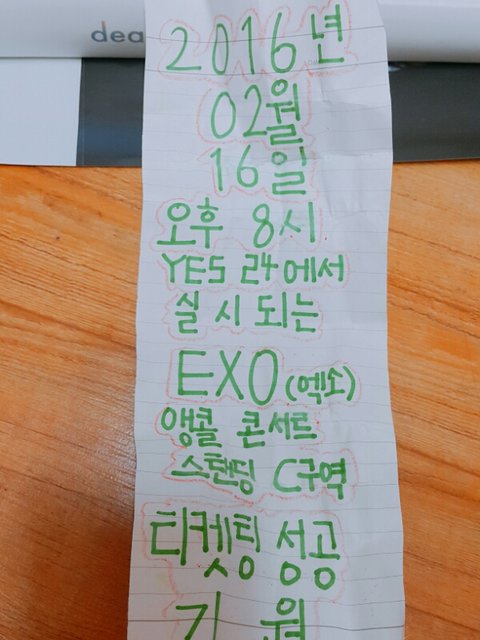 dea
2016년
02월
16일
오후 8시
YES 24에서
실시되는
EXO (엑소)
앵콜 콘서트
스탠딩 C구역
티켓팅 성공
기 원